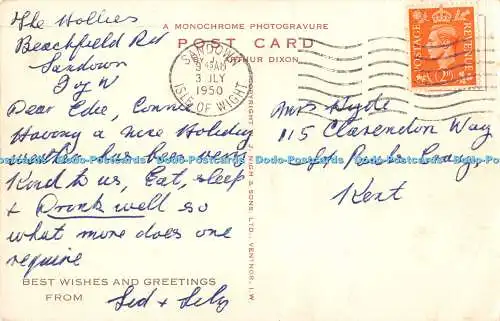 The Hollies
Beachfield Rd
Sandown
I of W
Dear Edie, Connie
Having a nice Holiday
weather has been very
Kind to us, Eat, sleep
+ Drink well so
what more does one
require
BEST WISHES AND GREETINGS
FROM Sid + Lily
A MONOCHROME PHOTOGRAVURE
POST CARD
BY ARTHUR DIXON
SANDOWN
3 JLY
1950
ISLE OF WIGHT
COPYRIGHT W. J. NIGH & SONS, LTD., VENTNOR, I.W.
POSTAGE REVENUE
Mrs Hyde
115 Clarendon Way
Kent
Dodo-Postcards Dodo-Postcards Dodo-Postcards Dodo-Postcards Dodo-Postcards